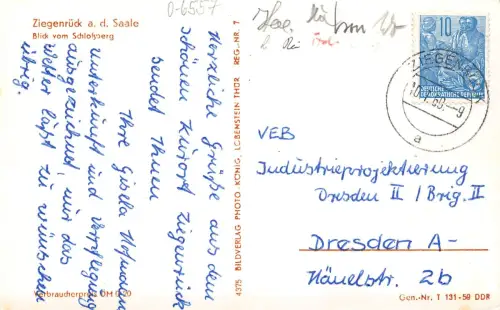 Ziegenrück a. d. Saale
Blick vom Schloßberg
0-6557
Herzliche Grüße aus dem
schönen Kurort Ziegenrück
sendet Ihnen
Ihre Gisela Hofmann
Unterkunft und Verpflegung
ausgezeichnet, nur das
Wetter läßt zu wünschen
übrig.
Verbraucherpreis DM 0,20
4375 BILDVERLAG PHOTO KÖNIG, LOBENSTEIN THÜR REG.-NR. 7
10
DEUTSCHE
DEMOKRATISCHE REPUBLIK
ZIEGENRÜCK
60.-9
a
VEB
Industrieprojektierung
Dresden II / Brig. II
Dresden A-
Hänelstr. 2b
Gen.-Nr. T 131-59 DDR